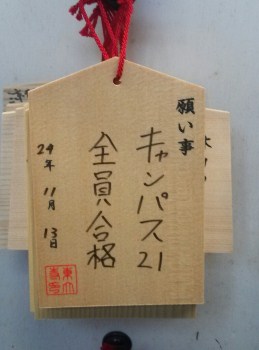 願い事
キャンパス21
全員合格
29年 11月 13日